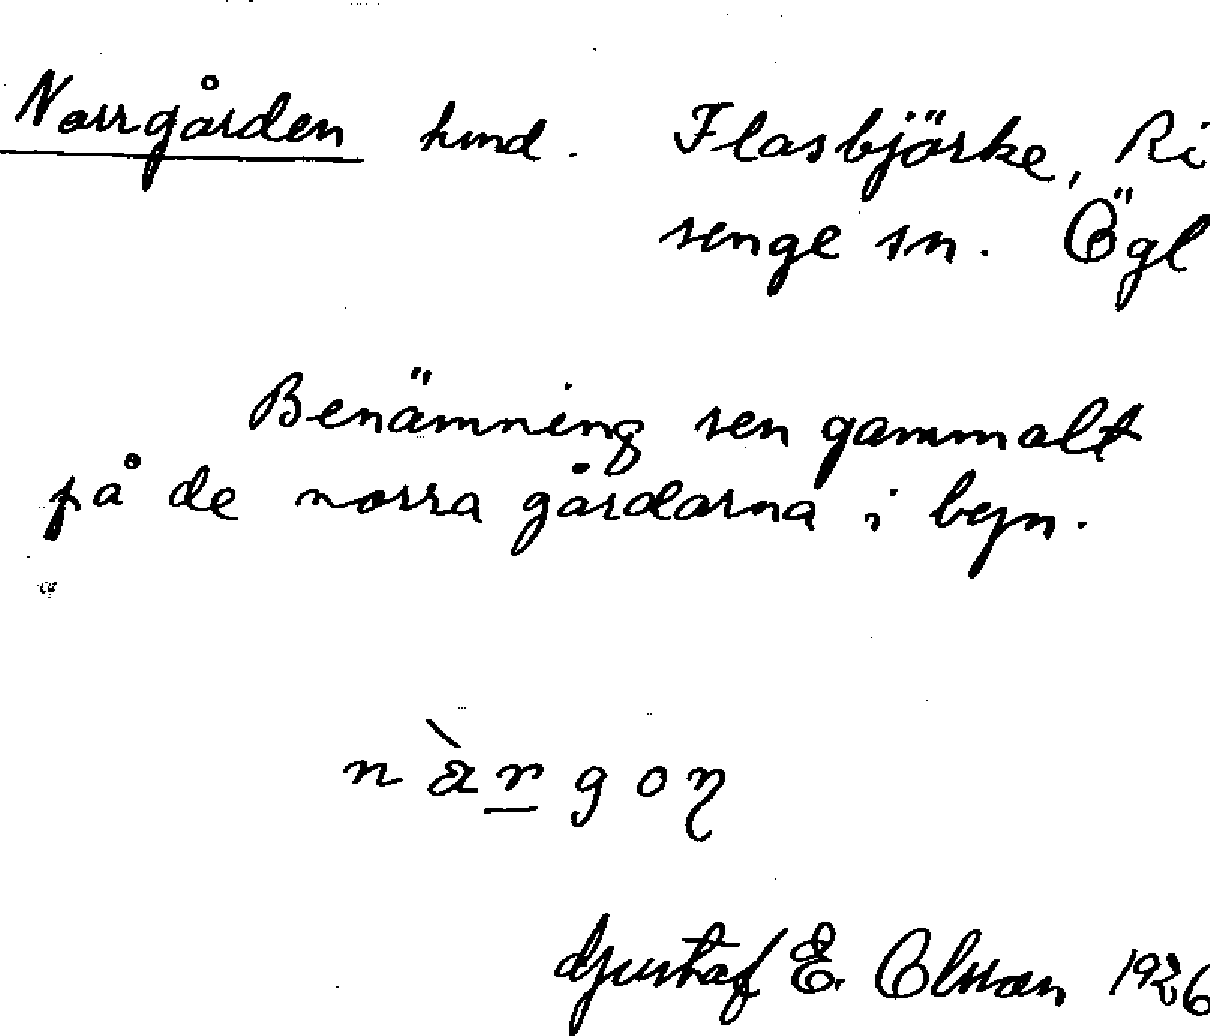 Norrgården hmd. Flasbjörke, Ri
senge sn. Ögl
Benämning sen gammalt
på de norra gårdarna i byn.
nàrgoη
Gustaf E. Olsson 1926